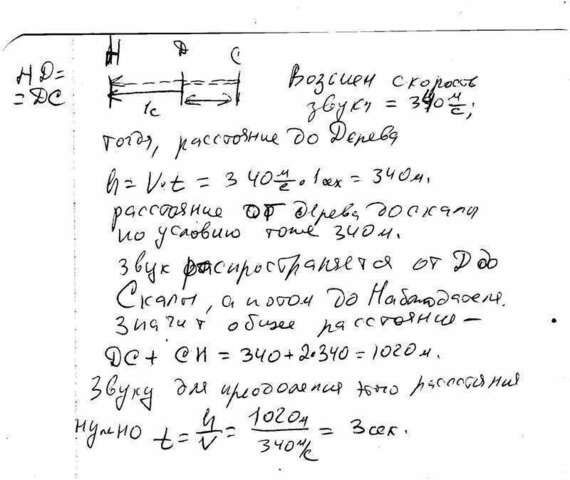 Н Д С
НД=
=ДС
1с
Возмем скорость
звука = 340 м/с;
тогда, расстояние до Дерева
h = V·t = 340 м/с · 1сек = 340м.
расстояние от дерева до скалы
по условию тоже 340м.
Звук распространяется от Д до
Скалы, а потом до Наблюдателя.
Значит общее расстояние –
ДС + СН = 340 + 2·340 = 1020м.
Звуку для преодоления этого расстояния
нужно t = h/V = 1020м/340м/с = 3сек.